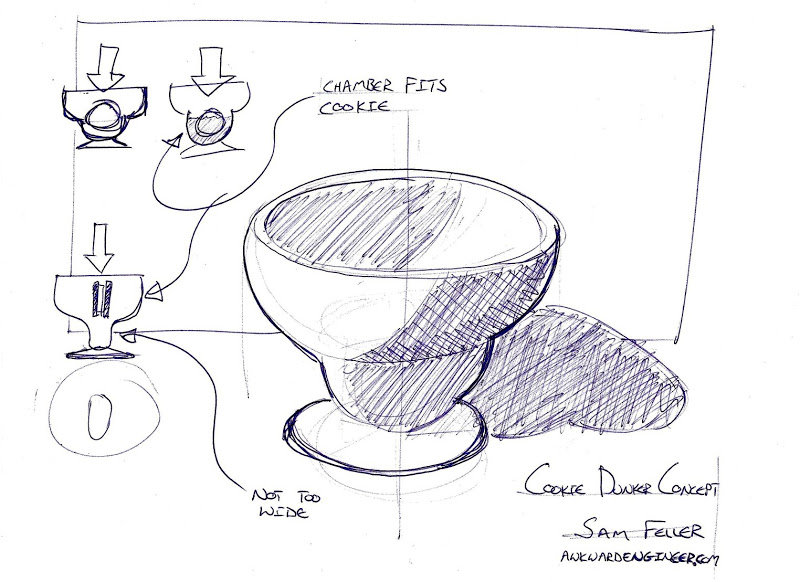 CHAMBER FITS
COOKIE
NOT TOO
WIDE
COOKIE DUNKER CONCEPT
SAM FELLER
AWKWARDENGINEER.COM